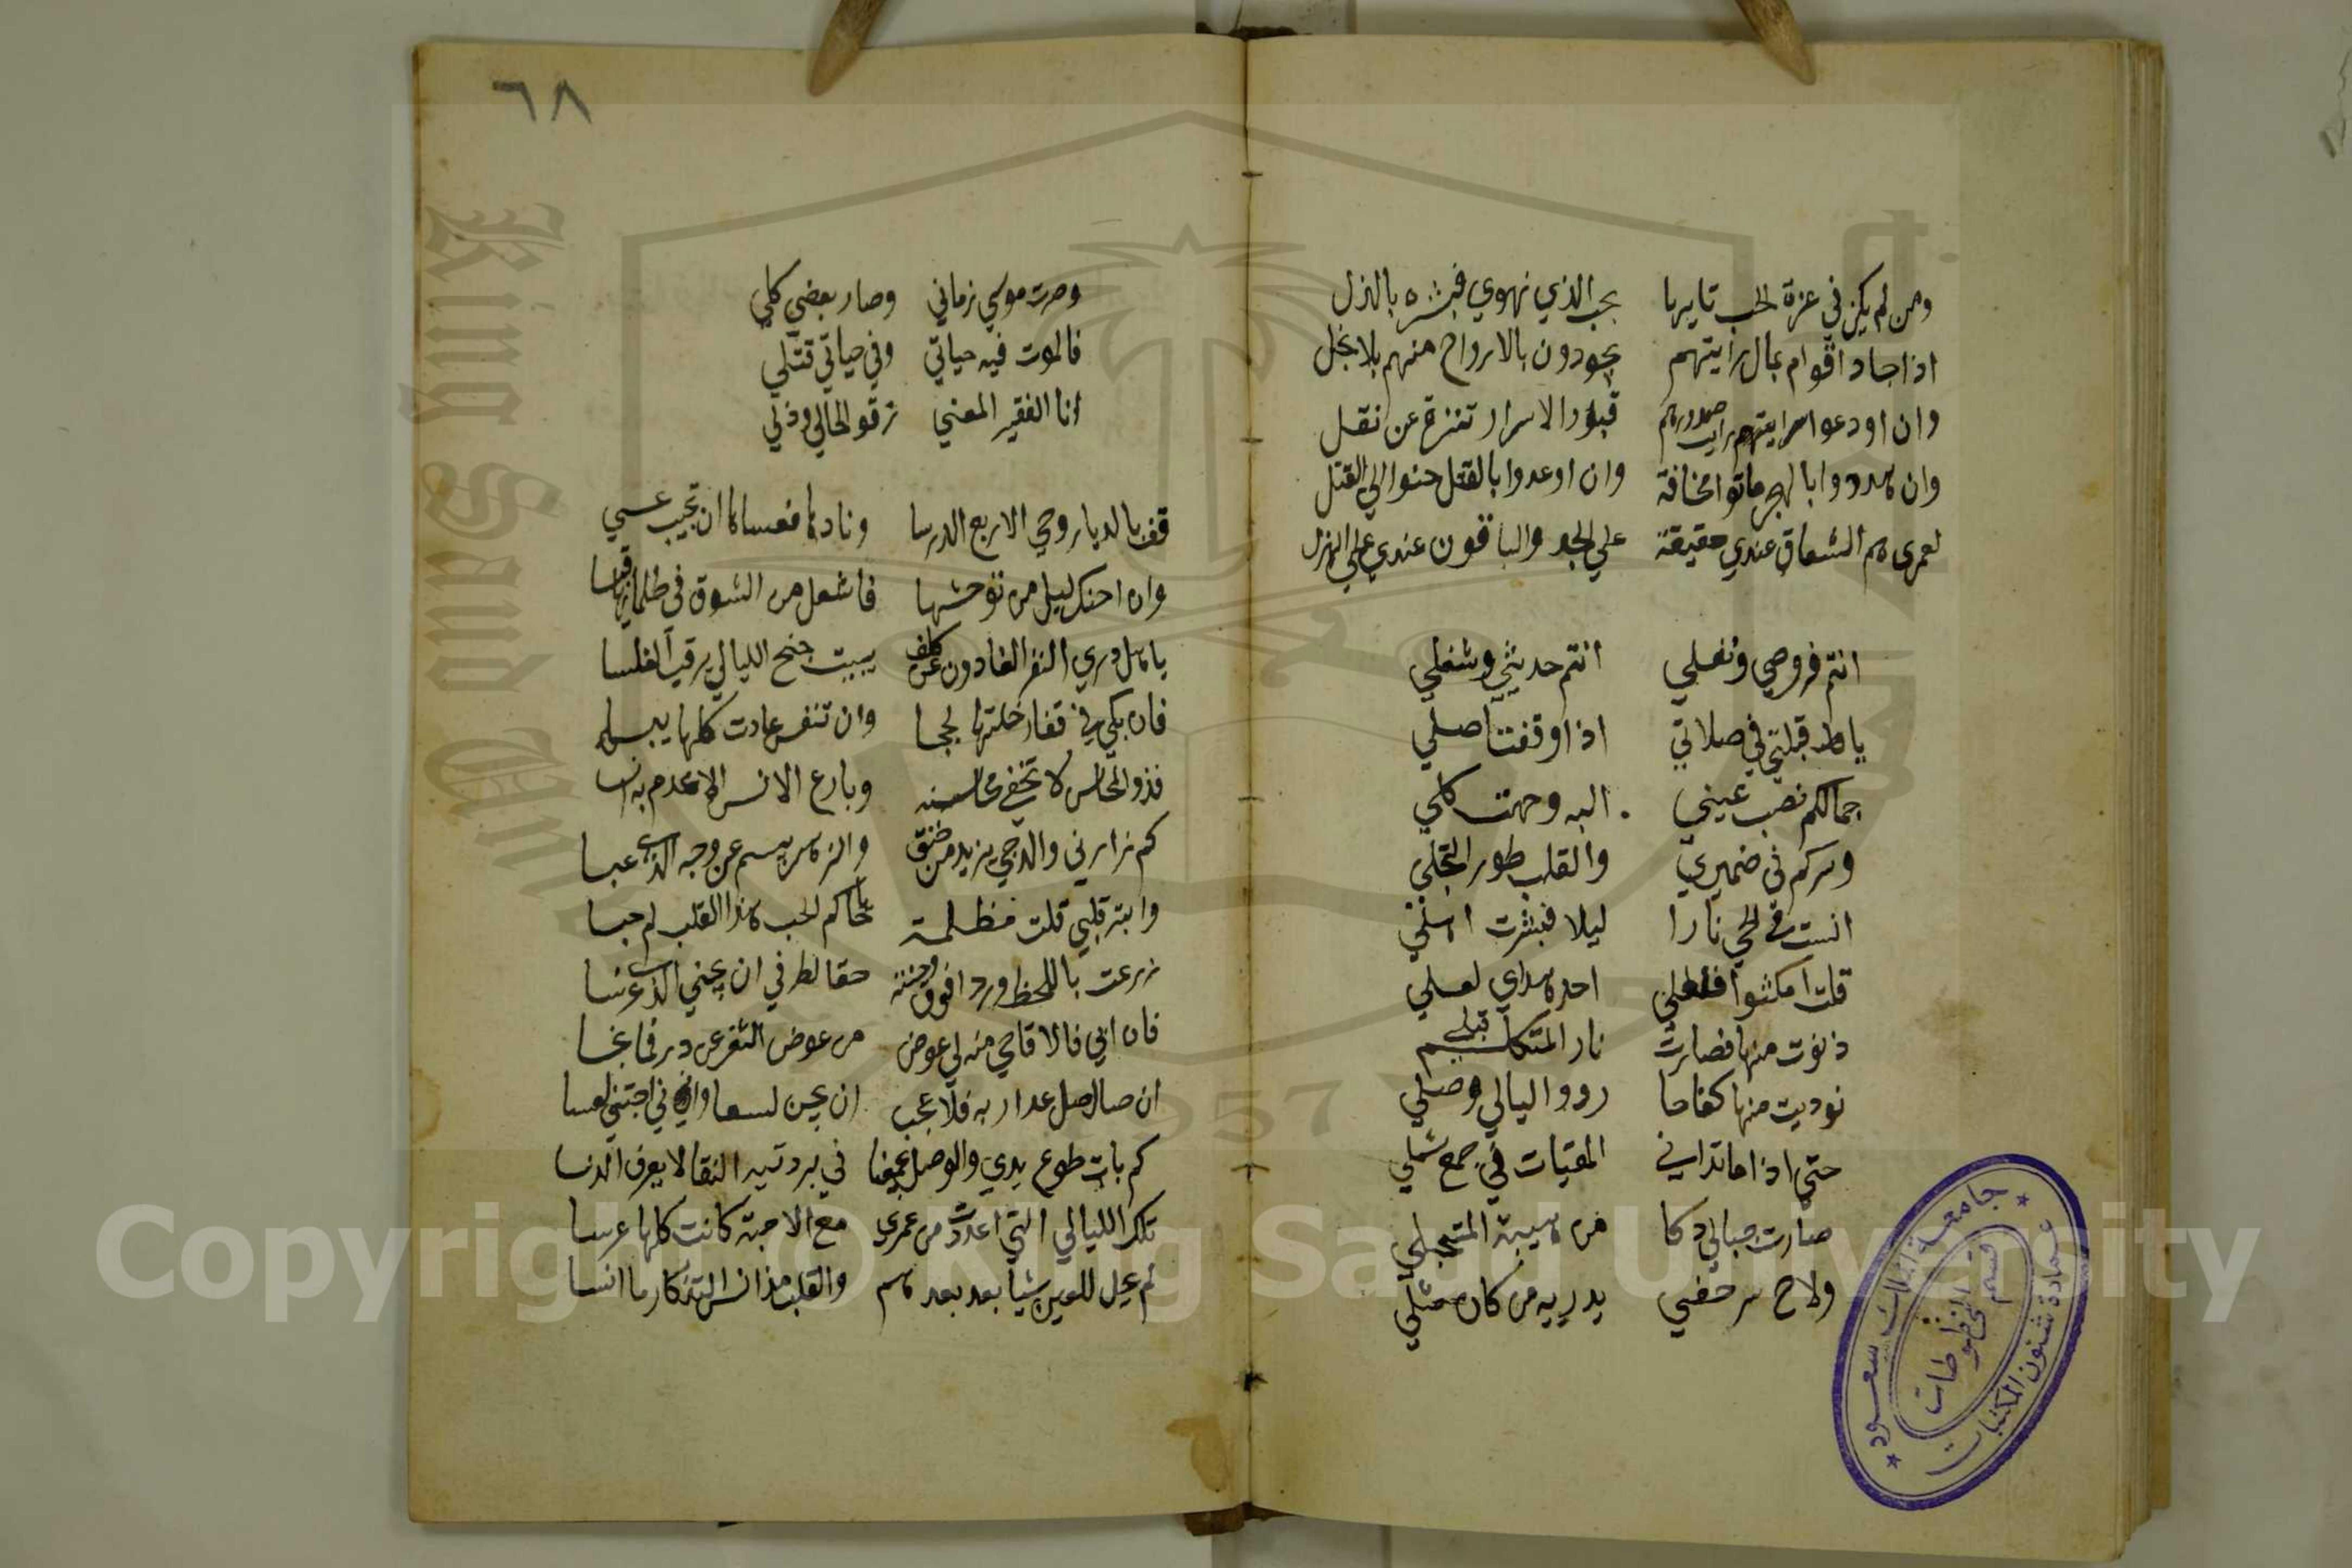 ومن لم يكن في عزة الحب تايها بحب الذي نهوي فبشره بالذل
اذا جاد اقوام بمال رايتهم يجودون بالارواح منهم بلا بخل
وان اودعوا سرا رايت صدورهم قبورا لاسرار تنزه عن نقل
وان هددوا بالهجر ماتوا مخافة وان اوعدوا بالقتل حنوا الي القتل
لعمري هم العشاق عندي حقيقة علي الجد والباقون عندي علي الهزل
انتم فروضي ونفلي انتم حديثي وشغلي
يا قبلتي في صلاتي اذا وقفت اصلي
جمالكم نصب عيني اليه وجهت كلي
وسركم في ضميري والقلب طور التجلي
انست في الحي نارا ليلا فبشرت اهلي
قلت امكثوا فلعلي اجد هداي لعلي
دنوت منها فصارت نار المتكليم قبلي
نوديت منها كفاحا ردوا ليالي وصلي
حتي اذا ما تداني الميقات في جمع شملي
صارت جبالي دكا من هيبة المتجلي
ولاح سر خفي يدريه من كان مثلي
٦٨
وصرت موسي زماني وصار بعضي كلي
فالموت فيه حياتي وفي حياتي قتلي
انا الفقير المعني رقوا لحالي وذلي
قف بالديار وحي الاربع الدرسا ونادها فعساها ان تجيب عسي
وان اجنك ليل من توحشها فاشعل من الشوق في ظلمائها قبسا
يا هل دري النفر الغادون عن كلف يبيت جنح الليالي يرقب الغلسا
فان بكي في قفار خلتها لججا وان تنفس عادت كلها يبسا
فذو المحاسن لا تخفي محاسنه وبارع الانس لا عدم به انسا
كم زارني والدجي يزيد من حنق والزهر يبسم عن وجه الذي عبسا
وابتز قلبي قلت مظلمة حاكم الحب هذا القلب لم حبسا
زرعت باللحظ وردا فوق وجنته حقا لطرفي ان يجني الذي غرسا
فان ابي فالاقاحي منه لي عوض من عوض الثغر عن در فما بخسا
ان صال صل عداربه فلا عجب ان يجن لسعا واني اجتني لعسا
كم بات طوع يدي والوصل يجمعنا في بردتيه النقا لا يعرف الدنسا
تلك الليالي التي اعددت من عمري مع الاحبة كانت كلها عرسا
لم يحل للعين شيا بعد بعدهم والقلب مذ انس التذكار ما انسا
جامعة الملك سعود
عمادة شئون المكتبات
قسم المخطوطات
King Saud University
Copyright © King Saud University
1957